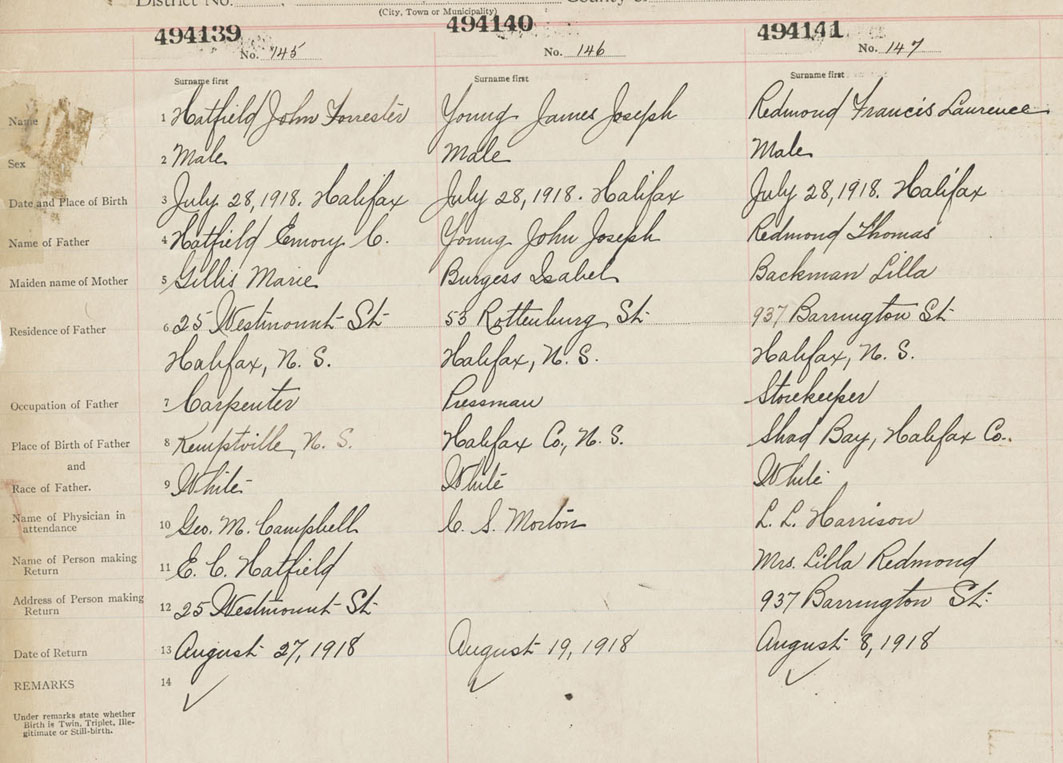 District No. County of
(City, Town or Municipality)
494139 494140 494141
No. 145 No. 146 No. 147
Surname first Surname first Surname first
Name 1 Hatfield John Forrester Young James Joseph Redmond Francis Laurence
Sex 2 Male Male Male
Date and Place of Birth 3 July 28, 1918. Halifax July 28, 1918. Halifax July 28, 1918. Halifax
Name of Father 4 Hatfield Emory C. Young John Joseph Redmond Thomas
Maiden name of Mother 5 Gillis Marie Burgess Isabel Backman Lilla
Residence of Father 6 25 Westmount St. 53 Rottenburg St. 937 Barrington St.
Halifax, N. S. Halifax, N. S. Halifax, N. S.
Occupation of Father 7 Carpenter Pressman Storekeeper
Place of Birth of Father 8 Kemptville, N. S. Halifax Co., N. S. Shad Bay, Halifax Co.
and
Race of Father. 9 White White White
Name of Physician in attendance 10 Geo. M. Campbell C. S. Morton L. L. Harrison
Name of Person making Return 11 E. C. Hatfield Mrs. Lilla Redmond
Address of Person making Return 12 25 Westmount St. 937 Barrington St.
Date of Return 13 August 27, 1918 August 19, 1918 August 8, 1918
REMARKS 14
Under remarks state whether
Birth is Twin, Triplet, Ille-
gitimate or Still-birth.